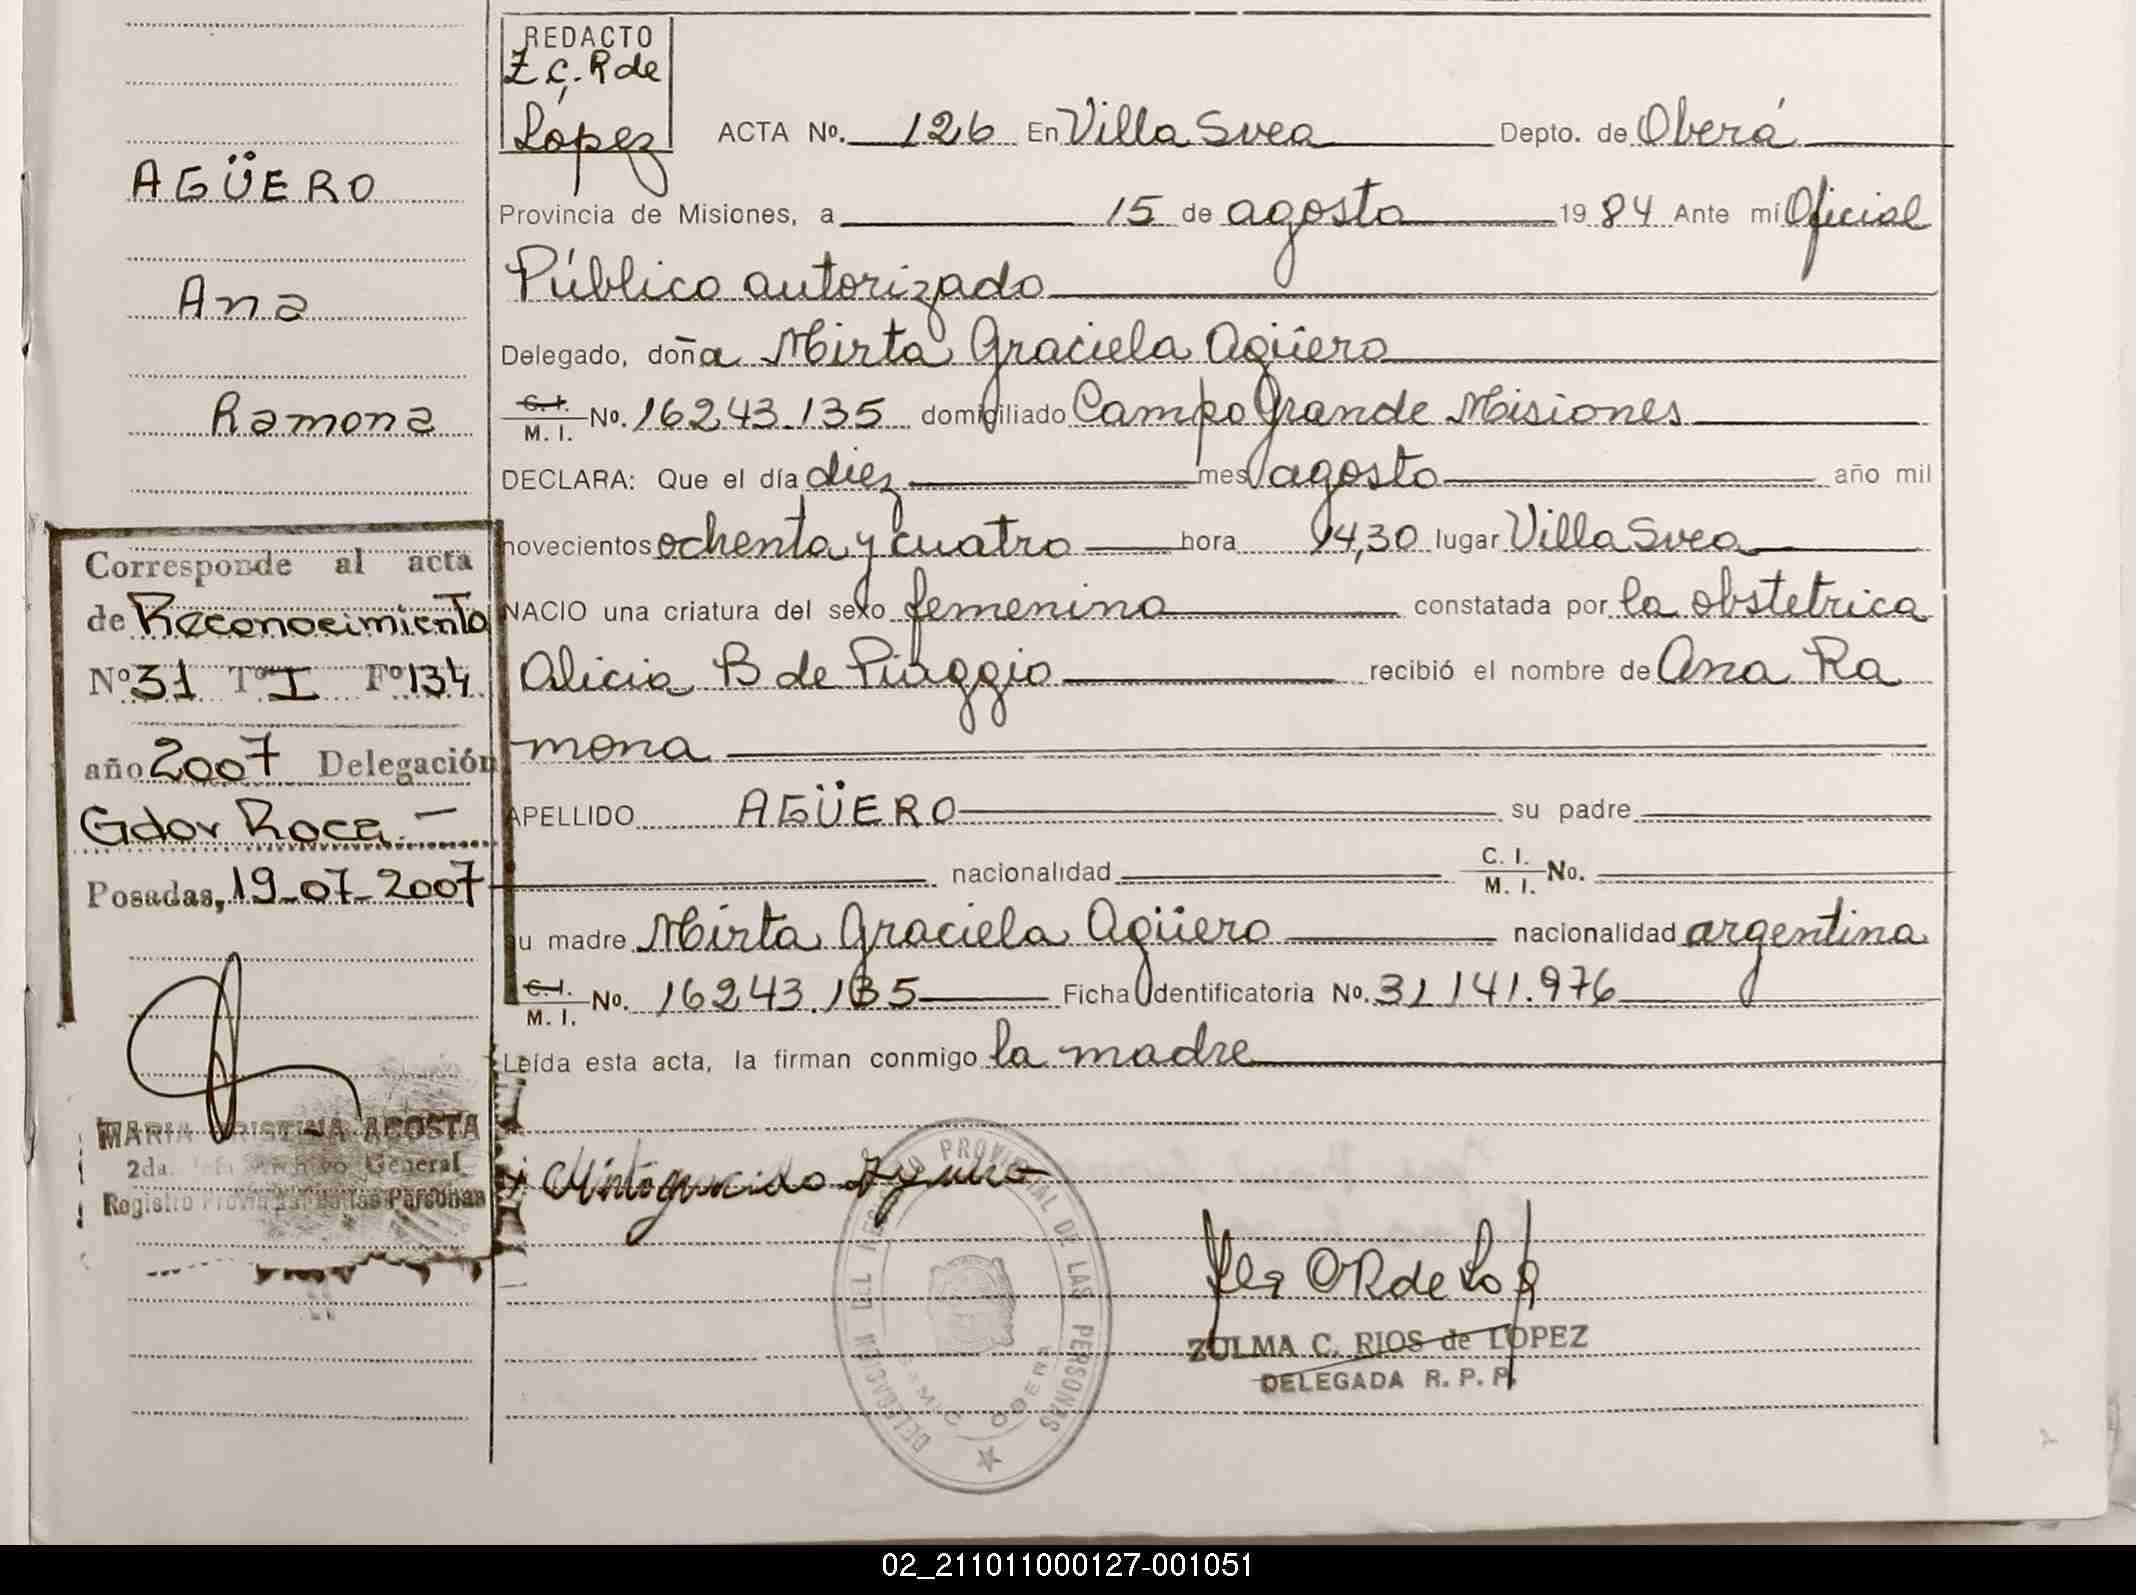 REDACTO
Z C. R de
López
ACTA No. 126 En Villa Svea Depto. de Oberá
AGÜERO
Provincia de Misiones, a 15 de agosto 1984 Ante mí Oficial
Público autorizado
Ana
Delegado, doña Mirta Graciela Agüero
C. I. M. I. No. 16243.135 domiciliado Campo Grande Misiones
Ramona
DECLARA: Que el día diez mes agosto año mil
novecientos ochenta y cuatro hora 14,30 lugar Villa Svea
NACIO una criatura del sexo femenino constatada por la obstetrica
Alicia B de Piaggio recibió el nombre de Ana Ra
mona
APELLIDO AGÜERO su padre
nacionalidad C. I. M. I. No.
su madre Mirta Graciela Agüero nacionalidad argentina
C. I. M. I. No. 16243.135 Ficha Identificatoria No. 31141.976
Leída esta acta, la firman conmigo la madre
Corresponde al acta
de Reconocimiento
Nº 31 Tº I Fº 134
año 2007 Delegación
Gdor Roca.-
Posadas, 19-07-2007
MARIA CRISTINA ACOSTA
2da. Jefa Archivo General
Registro Provincial de las Personas
DELEGACION DEL REGISTRO PROVINCIAL DE LAS PERSONAS
ZULMA C. RIOS de LOPEZ
DELEGADA R. P. P.
02_211011000127-001051